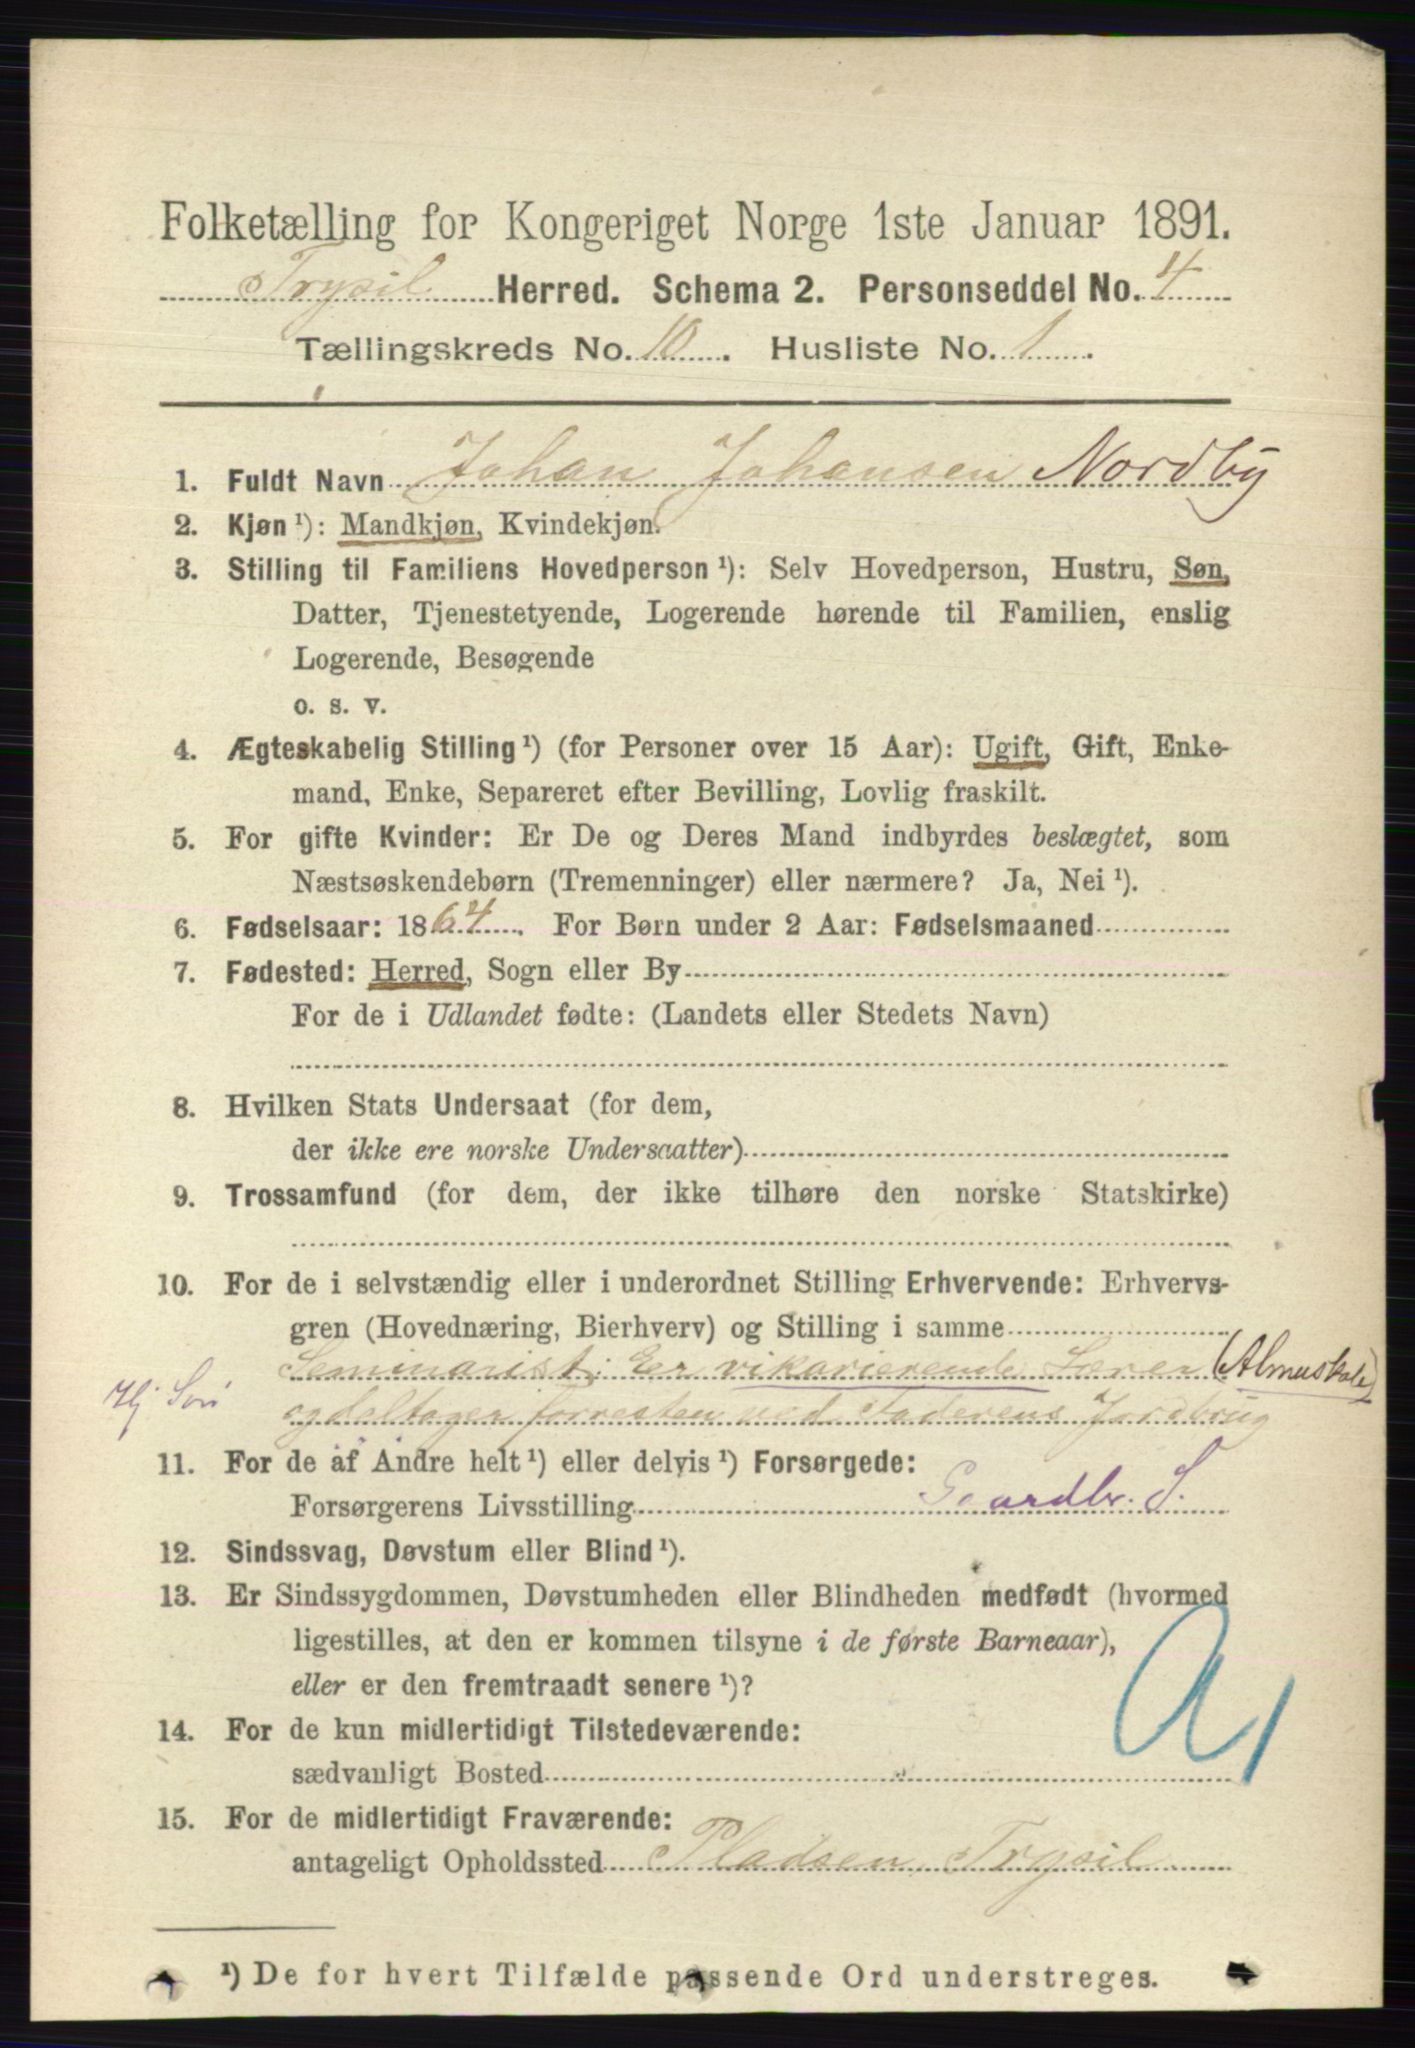 Folketælling for Kongeriget Norge 1ste Januar 1891.
Trysil Herred. Schema 2. Personseddel No. 4
Tællingskreds No. 10. Husliste No. 1.
1. Fuldt Navn Johan Johansen Nordby
2. Kjøn ¹): Mandkjøn, Kvindekjøn.
3. Stilling til Familiens Hovedperson ¹): Selv Hovedperson, Hustru, Søn,
Datter, Tjenestetyende, Logerende hørende til Familien, enslig
Logerende, Besøgende
o. s. v.
4. Ægteskabelig Stilling ¹) (for Personer over 15 Aar): Ugift, Gift, Enke-
mand, Enke, Separeret efter Bevilling, Lovlig fraskilt.
5. For gifte Kvinder: Er De og Deres Mand indbyrdes beslægtet, som
Næstsøskendebørn (Tremenninger) eller nærmere? Ja, Nei ¹).
6. Fødselsaar: 1864. For Børn under 2 Aar: Fødselsmaaned
7. Fødested: Herred, Sogn eller By
For de i Udlandet fødte: (Landets eller Stedets Navn)
8. Hvilken Stats Undersaat (for dem,
der ikke ere norske Undersaatter)
9. Trossamfund (for dem, der ikke tilhøre den norske Statskirke)
10. For de i selvstændig eller i underordnet Stilling Erhvervende: Erhvervs-
gren (Hovednæring, Bierhverv) og Stilling i samme
Seminarist; Er vikarierende Lærer (Almuskole)
Hj Søn
og deltager forresten ved Faderens Jordbrug
11. For de af Andre helt ¹) eller delvis ¹) Forsørgede:
Forsørgerens Livsstilling Gaardbr. S.
12. Sindssvag, Døvstum eller Blind ¹).
13. Er Sindssygdommen, Døvstumheden eller Blindheden medfødt (hvormed
ligestilles, at den er kommen tilsyne i de første Barneaar),
eller er den fremtraadt senere ¹)?
14. For de kun midlertidigt Tilstedeværende:
sædvanligt Bosted
15. For de midlertidigt Fraværende:
antageligt Opholdssted Pladsen, Trysil
¹) De for hvert Tilfælde passende Ord understreges.